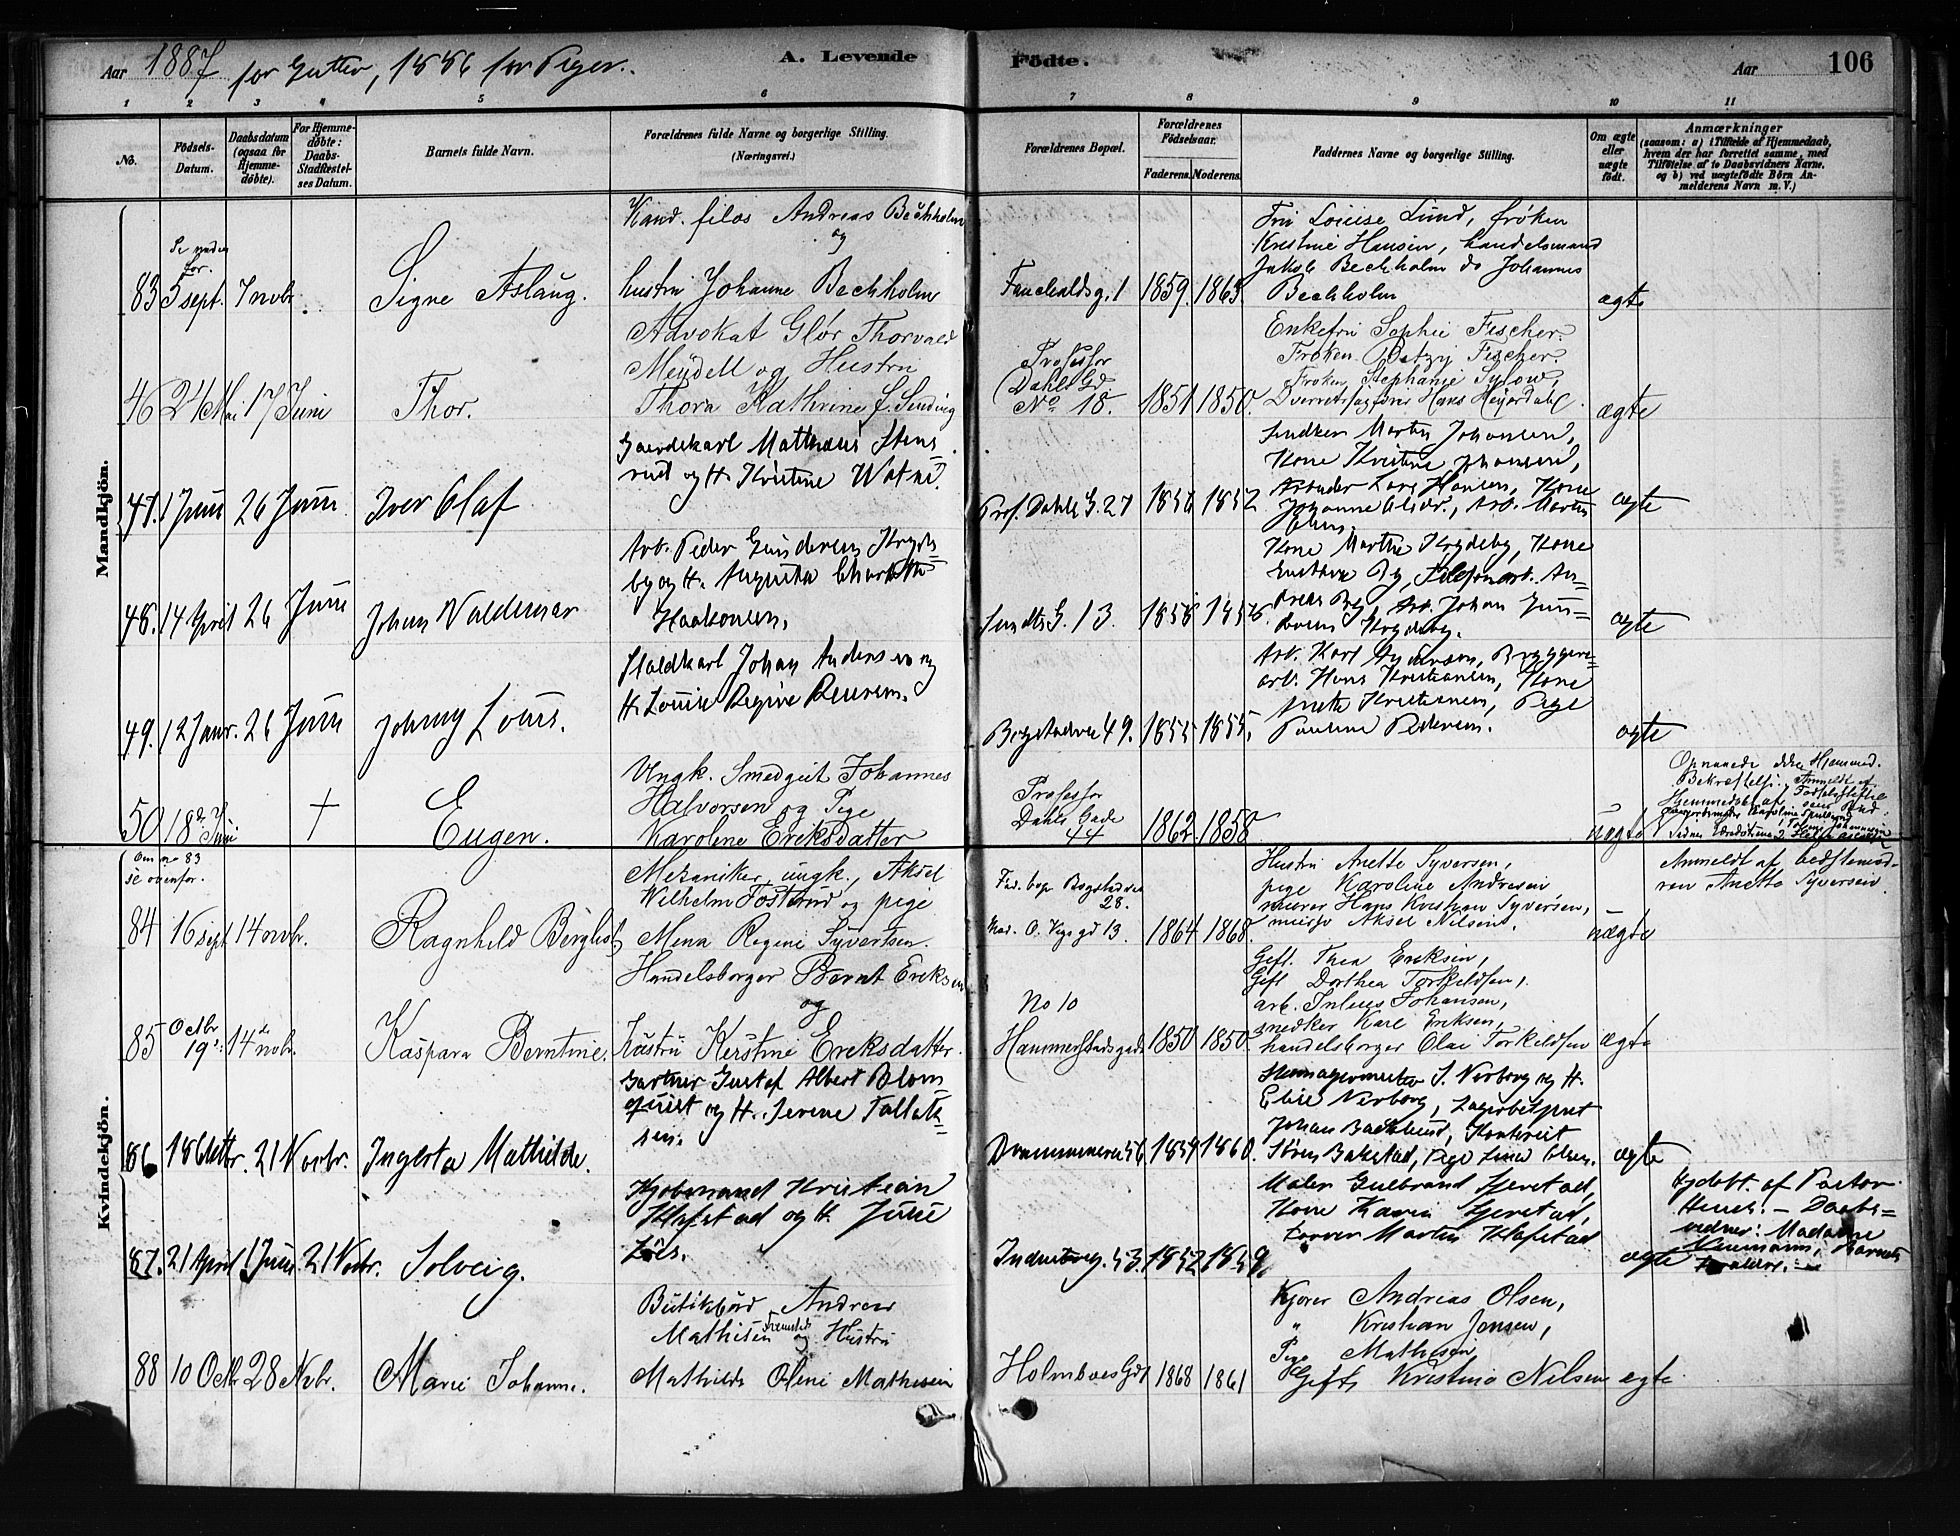 Aar 1887 for Gutter, 1886 for Piger. A. Levende Födte. Aar 106
1 2 3 4 5 6 7 8 9 10 11
No.
Födsels-Datum.
Daabsdatum (ogsaa for Hjemme-döbte).
For Hjemme-döbte: Daabs-Stadfæstel-ses Datum.
Barnets fulde Navn.
Forældrenes fulde Navne og borgerlige Stilling. (Næringsvei.)
Forældrenes Bopæl.
Forældrenes Födselsaar.
Faderens. Moderens.
Faddernes Navne og borgerlige Stilling.
Om ægte eller uægte födt.
Anmærkninger
(saasom: a) i Tilfælde af Hjemmedaab,
hvem der har forrettet samme, med
Tilföielse af to Daabsvidners Navne.
og b) ved uægtefödte Börn An-
melderens Navn m. V.)
Mandkjön.
Se neden for.
83 5 sept. 7 novbr. Signe Aslaug.
Kand. filos Andreas Bechholm
og
hustru Johanne Bechholm
Fauchaldsg. 1 1859. 1865.
Fru Louise Lund, frøken
Kristine Hansen, handelsmand
Jakob Bechholm do Johannes
Bechholm
ægte
46 24 Mai 17 Juni Thor.
Advokat Glør Thorvald
Mejdell og Hustru
Thora Kathrine f. Sinding
Professor
Dahls Gd
No 18. 1851 1850.
Enkefru Sophie Fischer.
Frøken Betzy Fischer
Frøken Stephanie Sylow,
Overretssagfører Hans Heyerdahl.
ægte
47. 1 Juni 26 Juni Iver Olaf
Gaardskarl Mathæus Stens
rud og H. Kristine Watne.
Prof. Dahls G. 27 1856 1852
Snedker Martin Johansen,
Kone Kristine Johansen,
Arbeider Lars Hansen, Kone
Johanne Alidr., Arb. Martin
Olsen.
ægte
48. 14 April 26 Juni Johan Valdemar
Arb. Peder Gundersen Krogde
by og H. Augusta Charlotte
Haakonsen.
Sundts G. 13. 1858 1856.
Kone Marthe Krogdeby, Kone
Gustava By, Telefonarb. An-
dreas By, Arb. Johan Gun-
dersen Krogdeby.
ægte
49. 12 Janr. 26 Juni Johnny Louis.
Staldkarl Johan Andersen og
H. Louise Regine Reiersen.
Bogstadvei 49. 1855 1855.
Arb. Karl Andersen, Bryggeri=
arb. Hans Kristiansen, Kone
Anette Kristiansen, Pige
Pauline Pedersen.
ægte
50 18de Juni † Eugen.
Ungk. Smedsvt Johannes
Halvorsen og Pige
Karolene Eriksdatter
Professor
Dahls Gade
44 1862 1858
uægte
Opnaaede ikke Hjemmed.
Bekræftelse. Anmeldt af
Kvindekjön.
Om no 83
se ovenfor.
84 16 sept 14 novbr. Ragnhild Bergliot
Mekaniker, ungk., Aksel
Wilhelm Fosterud og pige
Mena Regine Syvertsen.
Fad. bop Bogstadvei
28.
Mod. O. Vogsgd 13. 1864 1868.
Hustru Anette Syversen,
pige Karoline Andresen
murer Hans Kristian Syversen,
Aksel Nilsen.
uægte
Anmeldt af bedstemod-
ren Anette Syversen.
85 Octbr 19de 14de novbr. Kaspara Berntine.
Handelsborger Bernt Eriksen
og
Hustru Kerstine Eriksdatter.
No 10
Hammerstadsgade 1850 1850
Gift. Thea Eriksen,
Gift Dorthea Torkildsen,
arb. Julius Johansen,
snedker Karl Eriksen,
handelsborger Olai Torkildsen
ægte
86. 18 Oktbr. 21 Novbr. Ingerta Mathilde.
Gartner Gustaf Albert Blom
quist og H. Severine Tollefs
sen.
Drammensvei 56 1854 1860.
Skomagermester S. Verborg og H.
Elise Verborg, Lagerbetjent
Johan Backlund, Kontorist
Sören Bakstad, Pige Lina Olsen.
ægte
87. 21 April 1 Juni 21 Novbr. Solveig.
Kjøbmand Kristian
Klafstad og H. Julie
Løes.
Industrig. 53. 1852 1859.
Maler Gulbrand Gjerstad,
Kone Karen Gjerstad,
Garver Martin Klafstad
ægte
Hjdøbt. af Pastor
Heuch. – Daabs=
vidner: Madame
Neumann, Barnets
Forældre.
88 10 Octbr 28 Novbr. Marie Johanne.
Bütikbud Andreas
Mathisen og Hustru
Mathilde Oline Mathisen
Holmboesgd 1 1868 1861
Kjører Andreas Olsen,
" Kristian Jensen,
Pige Mathisen
Gift Kristine Nilsen
ægte